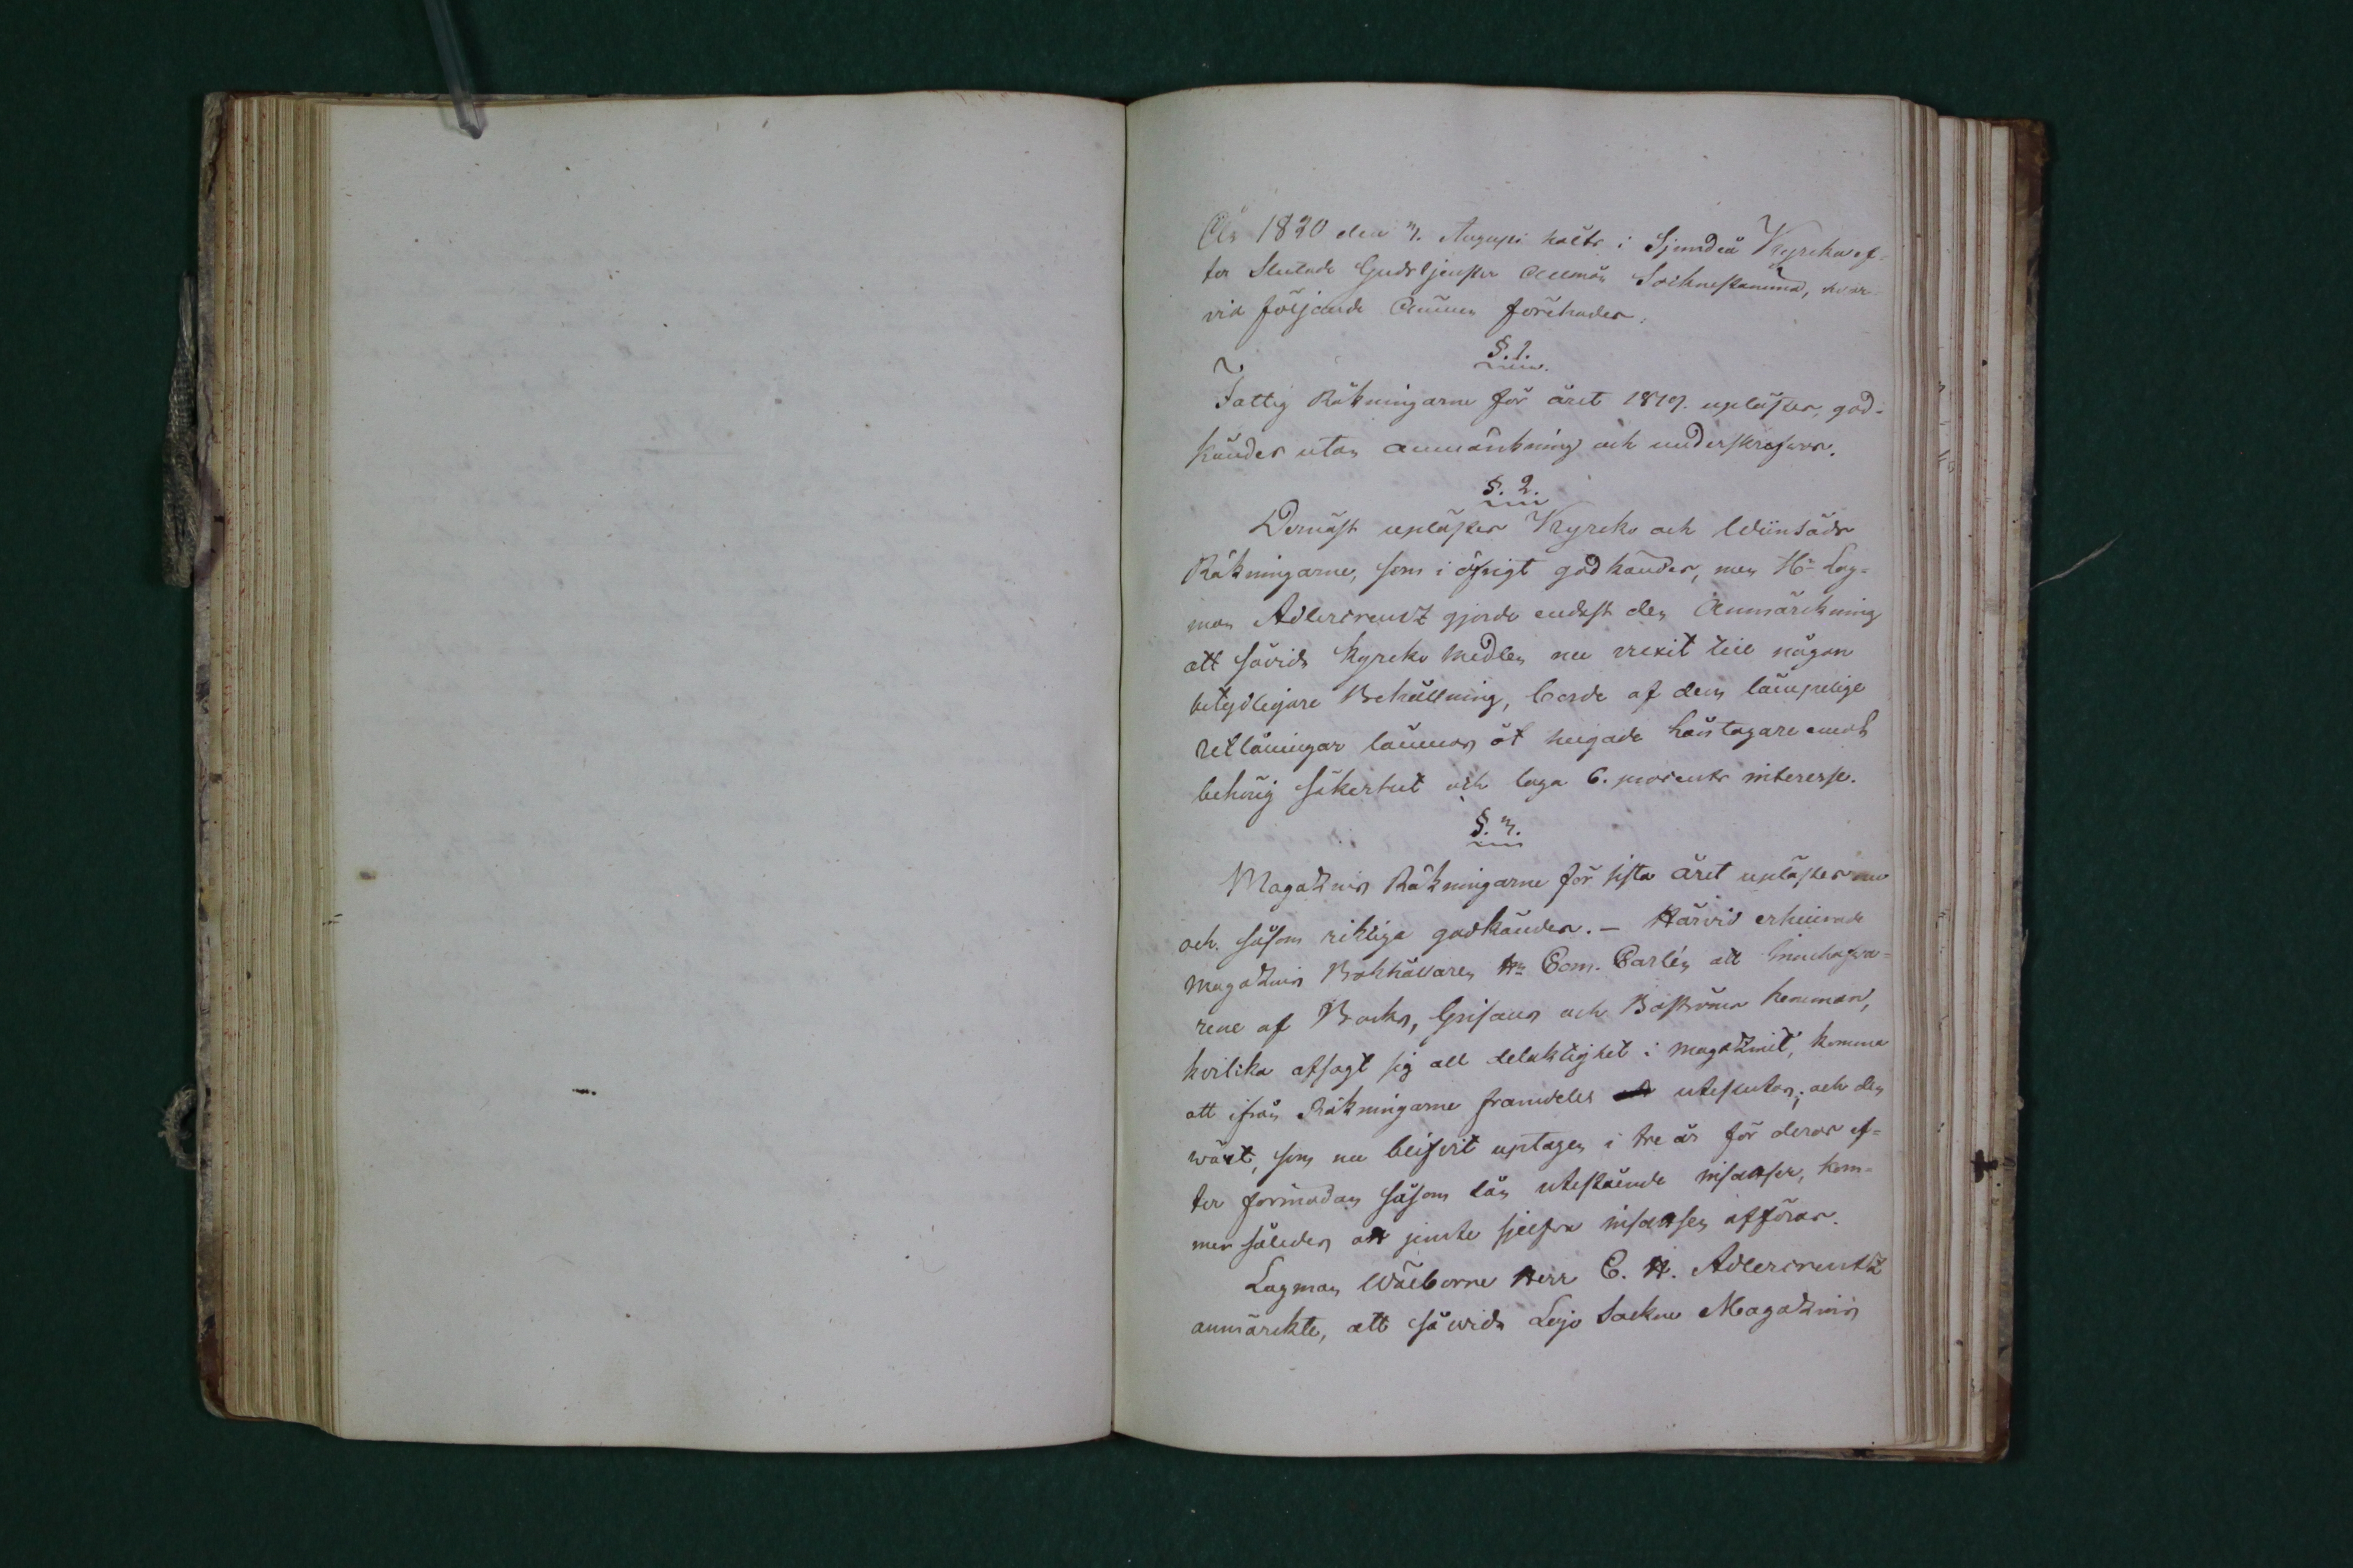 År 1820 den 3. Augusti hölts i Sjundeå Kyrcka ef-
ter slutade Gudstjensten Allmän Sockne stämma, hvar-
vid följande Ämnen förehades:
§. 1.
Fattig Räkningarne för året 1819. uplästes, god-
kändes utan anmärkning och underskrefwos.
§. 2.
Dernäst uplästes Kyrcko och Wiinsäds
Räkningarne, som i öfrigt godkändes, men Hr Lag-
man Adlercreutz gjorde endast den Anmärckning
att såvida kyrcko medlen nu vexit till någon
betydligare Behållning, borde af dem lämpelige
utlåningar lämnas åt hugade låntagare emot
behörig säkerhet och laga 6. procents interesse.
§. 3.
Magazins Räkningarne för sista året uplästes nu
och såsom riktiga godkändes. – Härvid erhindrade
magazins Bokhållaren Hr Com. Carlén att Innehafva-
rene af Backs, Grisans och Boströms hemman,
hvilka afsagt sig all delaktighet i magazinet, komma
att ifrån Räkningarne framdeles uteslutas; och den
växt, som nu blifvit uptagen i tre år för deras ef-
ter förmodan såsom lån utestående insatser, kom-
mer således att jemte sjelfva insatsen afföras.
Lagman Wälborne Herr C. H. Adlercreutz
anmärckte, att så wida Lojo Sockne Magazins